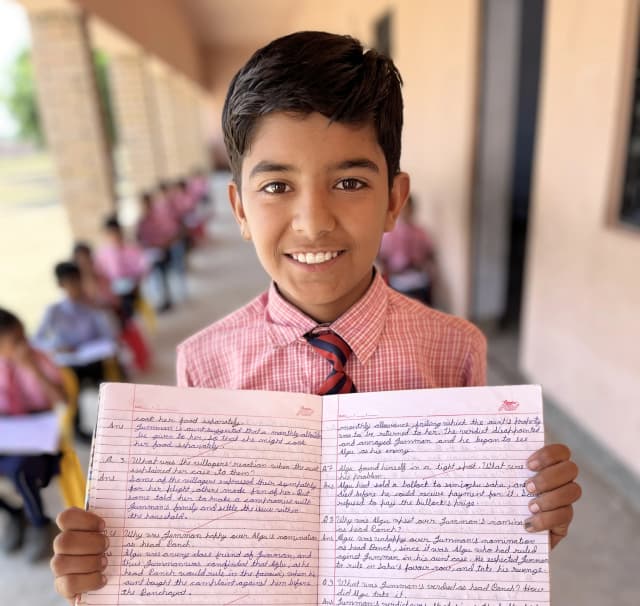 cook her food separately.
Ans Jumman's aunt suggested that a monthly allowance
be given to her, so that she might cook
her food separately.
Q 3. What was the villagers' reaction when the aunt
explained her case to them?
Ans Some of the villagers expressed their sympathy
for her plight, others made fun of her. But
some told her to make a compromise with
Jumman's family and settle the issue within
the household.
Why was Jumman happy over Algu's nomination
as head Panch.
Ans Algu was a very close friend of Jumman, and
thus Jumman was confident that Algu, as
head Panch would rule in his favour, when his
aunt brought the complaint against him before
the Panchayat.
monthly allowance failing which the aunt's property
was to be returned to her. The verdict disappointed
and annoyed Jumman and he began to see
Algu as his enemy.
Q 7 Algu found himself in a tight spot. What was
his problem.
Ans Algu had sold a bullock to Samjhu Sahu, and
died before he could receive payment for it.
refused to pay the bullock's price.
Q 8 Why was Algu upset over Jumman's nomination
as head Panch?
Ans Algu was unhappy over Jumman's nomination
as head Panch, since it was Algu who had ruled
against Jumman in his aunt case. He expected Jumman
to rule in Sahu's favour too, and take his revenge.
Q 9. What was Jumman's verdict as head Panch? How
did Algu take it.
Ans Jumman's verdict was that